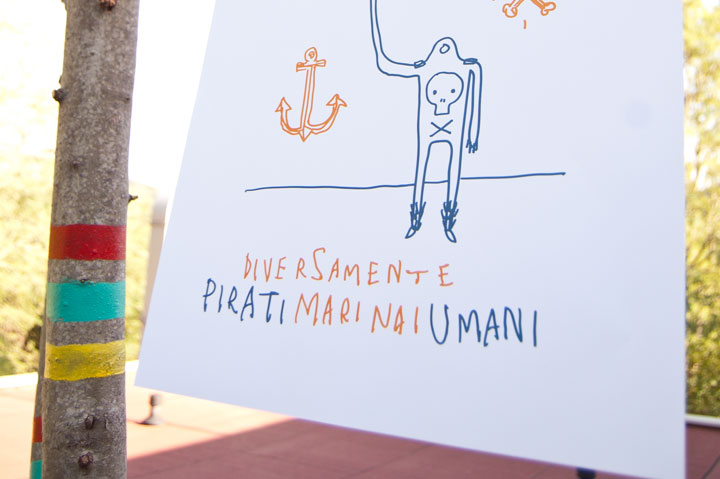 DIVERSAMENTE
PIRATI MARINAI UMANI